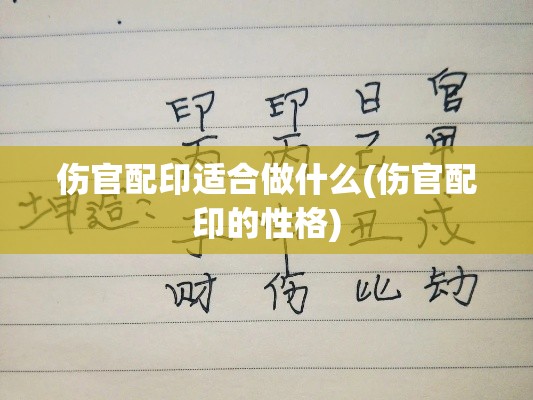 印 印 日 官
丙 丙 己 甲
伤官配印适合做什么(伤官配
印的性格)
坤造: 子 申 丑 戌
财 伤 比 劫